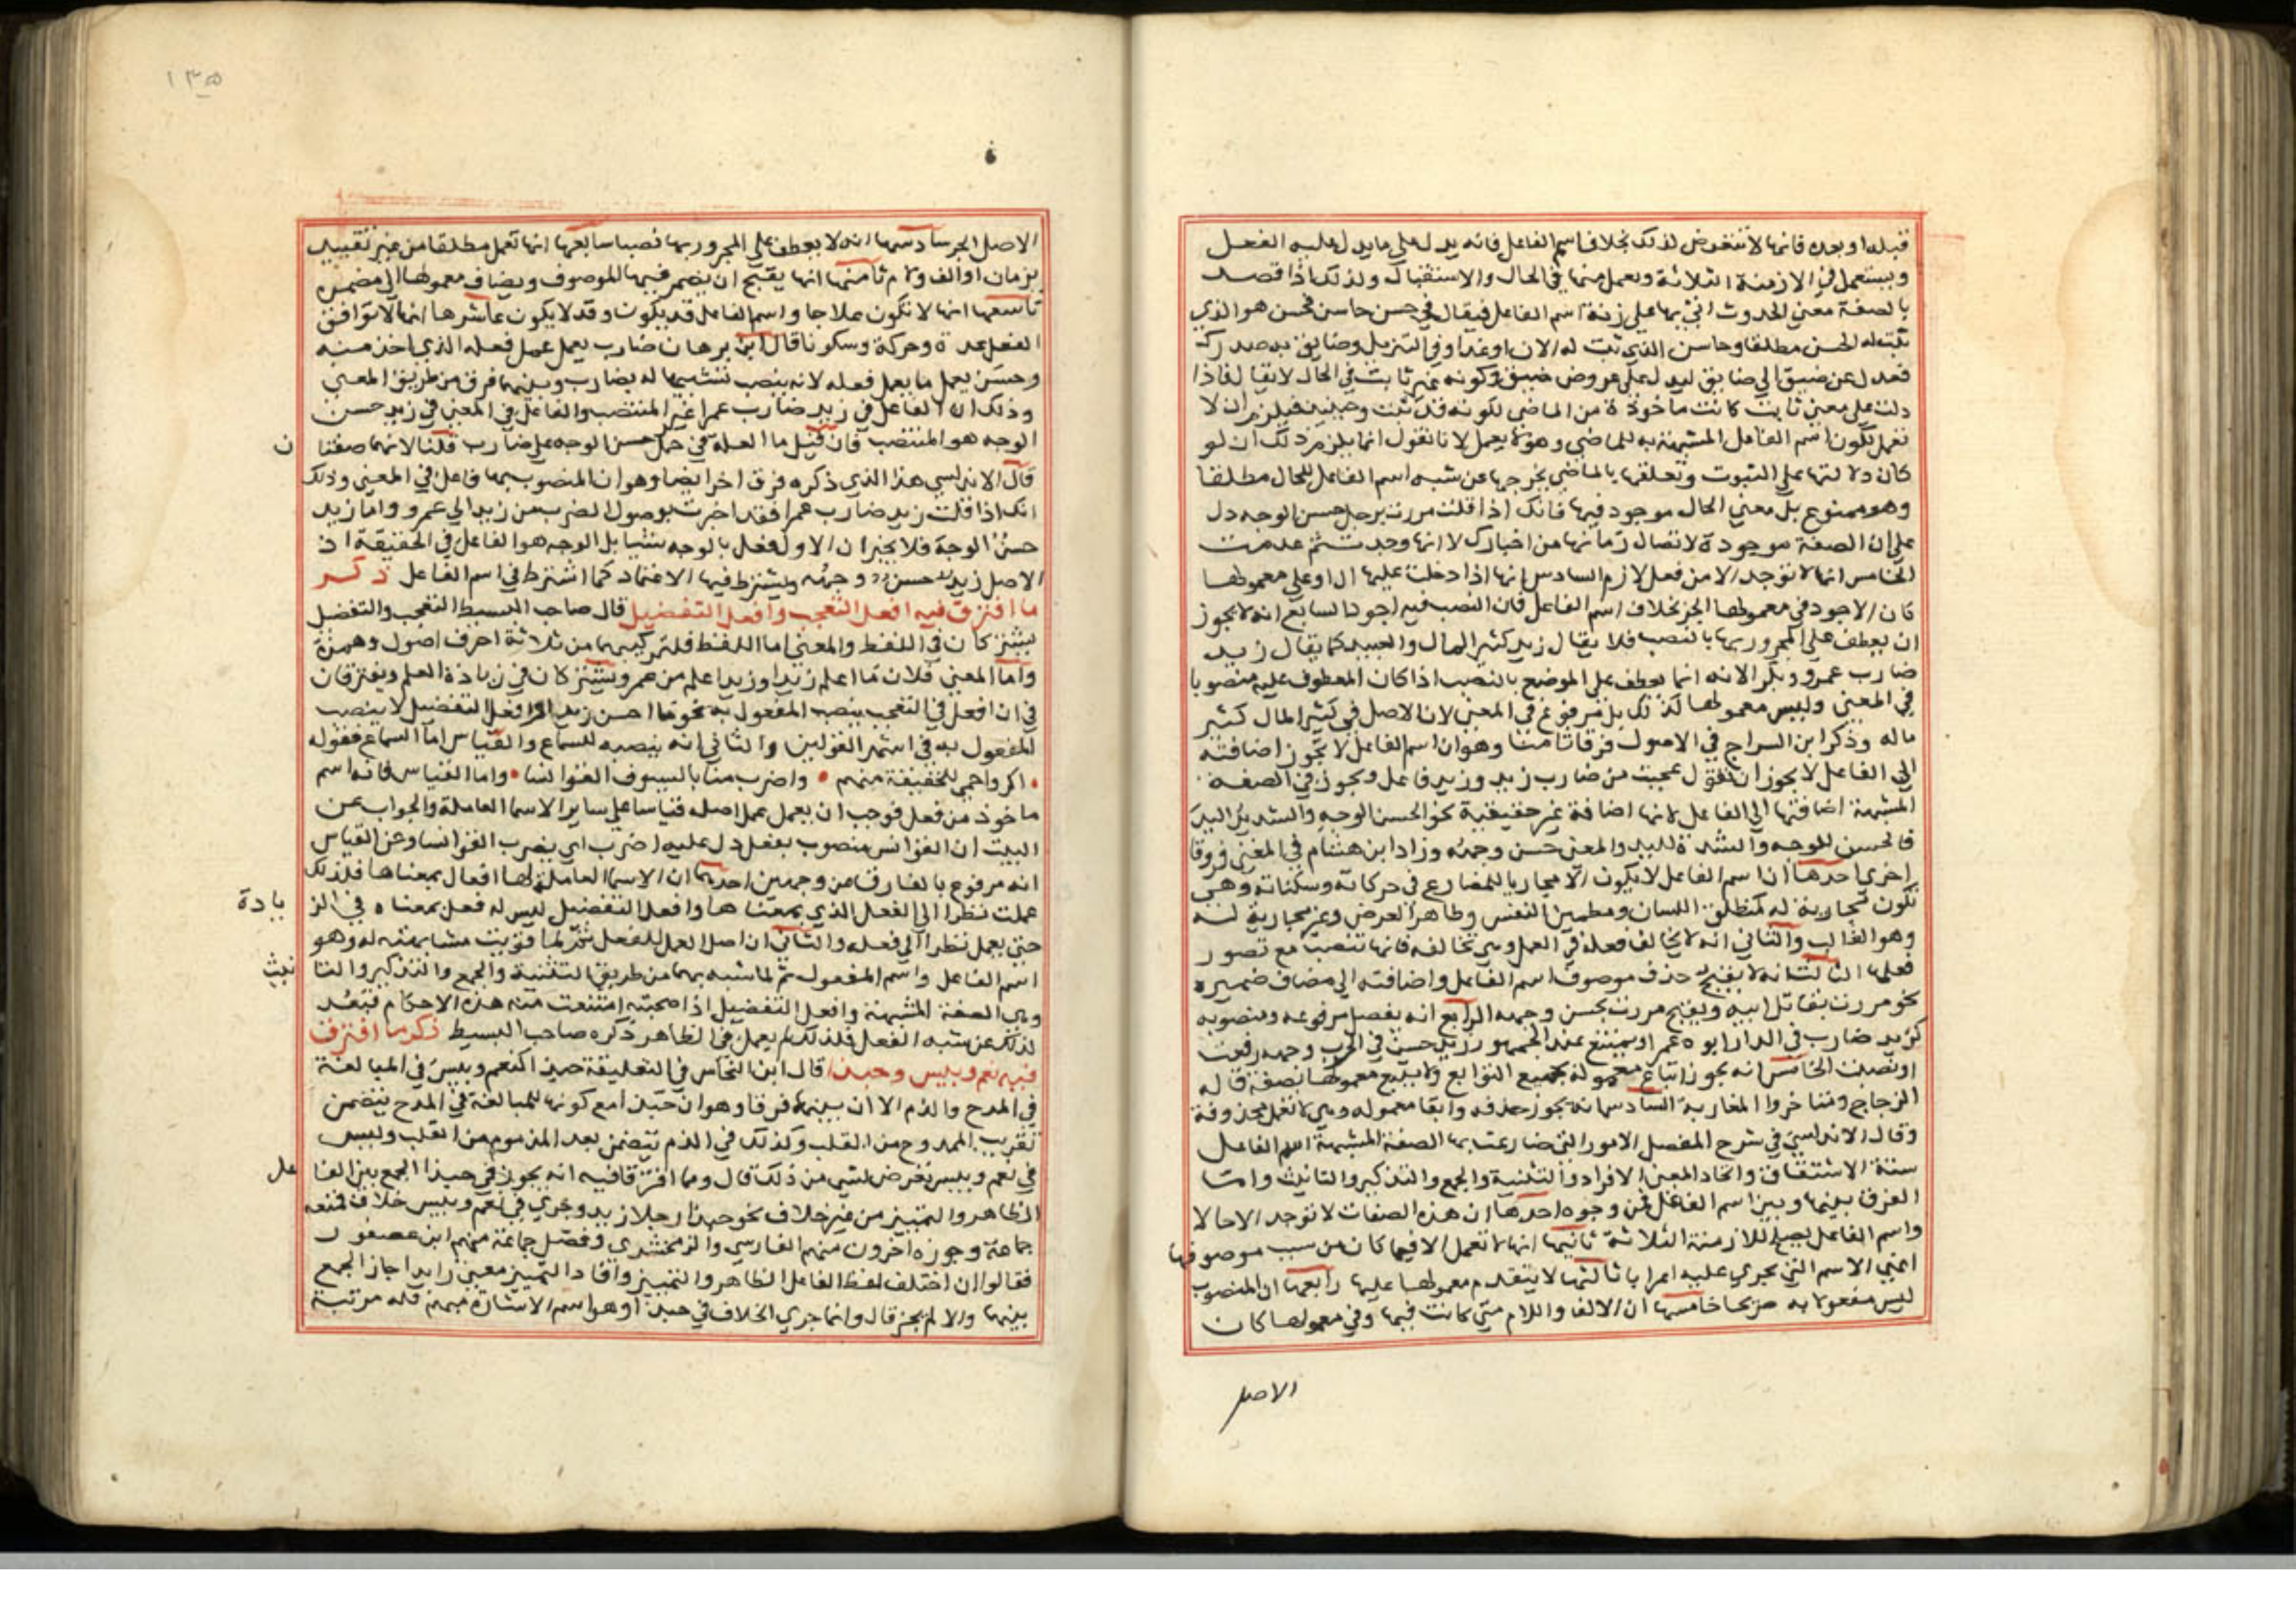 قبله او بعده فانها لا تتعرض لذلك بخلاف اسم الفاعل فانه يدل على ما يدل عليه الفعل
ويستعمل في الازمنة الثلاثة ويعمل منها في الحال والاستقبال ولذلك اذا قصد
بالصفة معني الحدوث اتي بها على زنة اسم الفاعل فيقال في حسن حاسن فحسن هو الذي
ثبت له الحسن مطلقا وحاسن الذي ثبت له الان او غدا وفي التنزيل وضايق به صدرك
فعدل عن ضيق الي ضايق ليدل على عروض ضيق وكونه غير ثابت في الحال لا يقال فاذا
دلت على معني ثابت كانت ماخوذة من الماضي لكونه قد ثبت وحينيذ فيلزم ان لا
تعمل لكون اسم الفاعل المشبهة به للماضي وهو لا يعمل لانا نقول انما يلزم ذلك ان لو
كان دلالتها على الثبوت وتعلقها بالماضي يخرجها عن شبه اسم الفاعل للحال مطلقا
وهو ممنوع بل معني الحال موجود فيها فانك اذا قلت مررت برجل حسن الوجه دل
على ان الصفة موجودة لاتصال زمانها من اخبارك لا انها وجدت ثم عدمت
الخامس انها لا توجد الا من فعل لازم السادس انها اذا دخلت عليها ال او على معمولها
كان الاجود في معمولها الجر بخلاف اسم الفاعل فان النصب فيه اجود السابع انه لا يجوز
ان يعطف على المجرور بها بالنصب فلا يقال زيد كثير المال والعبيد كما يقال زيد
ضارب عمرو وبكرا لانه انما يعطف على الموضع بالنصب اذا كان المعطوف عليه منصوبا
في المعني وليس معمولها كذلك بل مرفوع في المعني لان الاصل في كثير المال كثير
ماله وذكر ابن السراج في الاصول فرقا ثامنا وهو ان اسم الفاعل لا يجوز اضافته
الي الفاعل لا يجوز ان تقول عجبت من ضارب زيد وزيد فاعل ويجوز في الصفة
المشبهة اضافتها الي الفاعل لانها اضافة غير حقيقية نحو الحسن الوجه والشديد اليد
فالحسن للوجه والشدة لليد والمعني حسن وجهه وزاد ابن هشام في المغني فروقا
اخري احدها ان اسم الفاعل لا يكون الا مجاريا للمضارع في حركاته وسكناته وهي
تكون مجارية له كمنطلق اللسان ومطمين النفس وطاهر العرض وغير مجارية له
وهو الغالب والثاني انه لا يخالف فعله في العمل وهي تخالفه فانها تنصب مع قصور
فعلها الثالث انه لا يقبح حذف موصوف اسم الفاعل واضافته الي مضاف ضميره
نحو مررت بقاتل ابيه ويقبح مررت بحسن وجهه الرابع انه يفصل مرفوعه ومنصوبه
كزيد ضارب في الدار ابوه عمرا ويمتنع عند الجمهور زيد حسن في الحرب وجهه رفعت
او نصبت الخامس انه يجوز اتباع معموله بجميع التوابع ولا يتبع معمولها بصفة قاله
الزجاج ومتاخروا المغاربة السادس انه يجوز حذفه وابقا معموله وهي لا تعمل محذوفة
وقال الاندلسي في شرح المفصل الامور التي ضارعت بها الصفة المشبهة اسم الفاعل
ستة الاشتقاق واتحاد المعني والافراد والتثنية والجمع والتذكير والتانيث واما
الفرق بينها وبين اسم الفاعل فمن وجوه احدها ان هذه الصفات لا توجد الا حالا
واسم الفاعل يصلح للازمنة الثلاثة ثانيها انها لا تعمل الا فيما كان من سبب موصوفها
اعني الاسم الذي يجري عليه اعرابا ثالثها لا يتقدم معمولها عليها رابعها ان المنصوب
ليس مفعولا به صريحا خامسها ان الالف واللام متي كانت فيها وفي معمولها كان
الاصل
١٣٥
الاصل الجر سادسها انه لا يعطف على المجرور بها نصبا سابعها انها تعمل مطلقا من غير تقييد
بزمان او الف ولام ثامنها انها يقبح ان يضمر فيها الموصوف ويضاف معمولها الي مضمره
تاسعها انها لا تكون علاجا واسم الفاعل قد يكون وقد لا يكون عاشرها انها لا توافق
الفعل عدة وحركة وسكونا قال ابن برهان ضارب يعمل عمل فعله الذي اخذ منه
وحسن يعمل ما يعمل فعله لانه ينصب تشبيها له بضارب وبينهما فرق من طريق المعني
وذلك ان الفاعل في زيد ضارب عمرا غير المنتصب والفاعل في المعني في زيد حسن
الوجه هو المنتصب فان قيل ما العلة في حمل حسن الوجه على ضارب قلنا لانهما صفتا ن
قال الاندلسي هذا الذي ذكره فرق اخر ايضا وهو ان المنصوب بها فاعل في المعني وذلك
انك اذا قلت زيد ضارب عمرا فقد اخبرت بوصول الضرب من زيد الي عمرو واما زيد
حسن الوجه فلا يخبر ان الاول فعل بالوجه شيا بل الوجه هو الفاعل في الحقيقة اذ
الاصل زيد حسن وجهه ويشترط فيها الاعتماد كما اشترط في اسم الفاعل ذكر
ما افترق فيه افعل التعجب وافعل التفضيل قال صاحب البسيط التعجب والتفضل
يشتركان في اللفظ والمعني اما اللفظ فلتركيبهما من ثلاثة احرف اصول وهمزة
واما المعني فلان ما اعلم زيدا وزيد اعلم من عمرو يشتركان في زيادة العلم ويفترقان
في ان افعل في التعجب ينصب المفعول به نحو ما احسن زيدا وافعل التفضيل لا ينصب
المفعول به في اشهر القولين والثاني انه ينصبه للسماع والقياس اما السماع فقوله
اكر واحمي للحقيقة منهم • واضرب منا بالسيوف القوانسا • واما القياس فانه اسم
ماخوذ من فعل فوجب ان يعمل عمل اصله قياسا على ساير الاسما العاملة والجواب عن
البيت ان القوانس منصوب بفعل دل عليه اضرب اي يضرب القوانسا وعن القياس
انه مرفوع بالفارق من وجهين احدهما ان الاسما العاملة لها افعال بمعناها فلذلك
عملت نظرا الي الفعل الذي بمعناها وافعل التفضيل ليس له فعل بمعناه في الز يادة
حتي يعمل نظرا الي فعله والثاني ان اصل العمل للفعل ثم لما قويت مشابهته له وهو
اسم الفاعل واسم المفعول ثم لما شبه بهما من طريق التثنية والجمع والتذكير والتا نيث
وهي الصفة المشبهة وافعل التفضيل اذا صحبته امتنعت منه هذه الاحكام فبعد
لذلك عن شبه الفعل فلذلك لم يعمل في الظاهر ذكره صاحب البسيط ذكر ما افترق
فيه نعم وبيس وحبذا قال ابن النحاس في التعليقة حبذا كنعم وبيس في المبالغة
في المدح والذم الا ان بينهما فرقا وهو ان حبذا مع كونها للمبالغة في المدح يتضمن
تقريب الممدوح من القلب وكذلك في الذم يتضمن بعد المذموم من القلب وليس
في نعم وبيس تعرض لشي من ذلك قال ومما افترقا فيه انه يجوز في حبذا الجمع بين الفا عل
الظاهر والتمييز من غير خلاف نحو حبذا رجلا زيد وجري في نعم وبيس خلاف فمنعه
جماعة وجوزه اخرون منهم الفارسي والزمخشري وفصل جماعة منهم ابن عصفور
فقالوا ان اختلف لفظ الفاعل الظاهر والتمييز وافاد التمييز معني زايدا جاز الجمع
بينهما والا لم يجز قال وانما جري الخلاف في حبذا وهو اسم الاشارة مبهم فله مرتبة